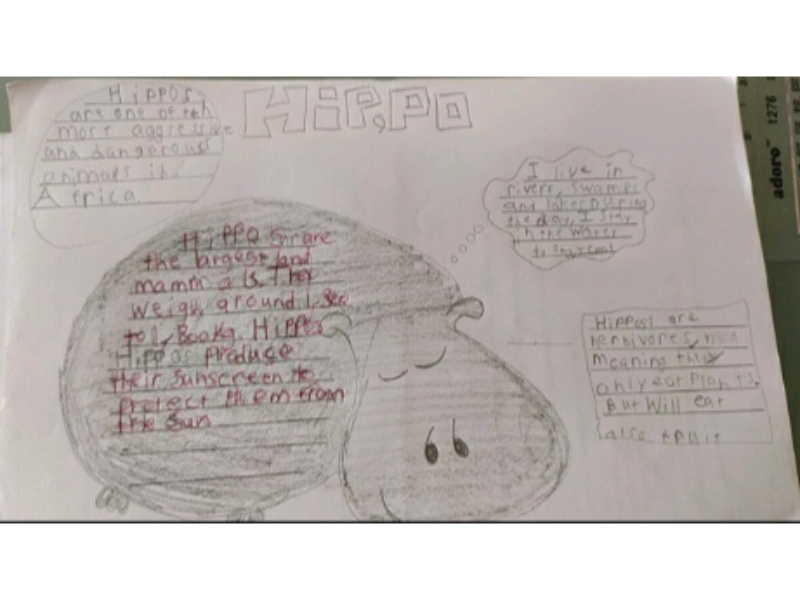 HiPPO
Hippos
are one of
most aggressive
and dangerous
animals in
Africa.
I live in
rivers, swamps
and lakes During
the day, I stay
in the water
to stay cool
HiPPO's are
the largest land
mammals. They
weigh around 1,
to 1,800kg. Hippos
Hippos produce
their sunscreen to
protect them from
the sun
Hippos are
herbivores,
meaning they
only eat plants.
But will eat
also fruit
adoro™ 1276